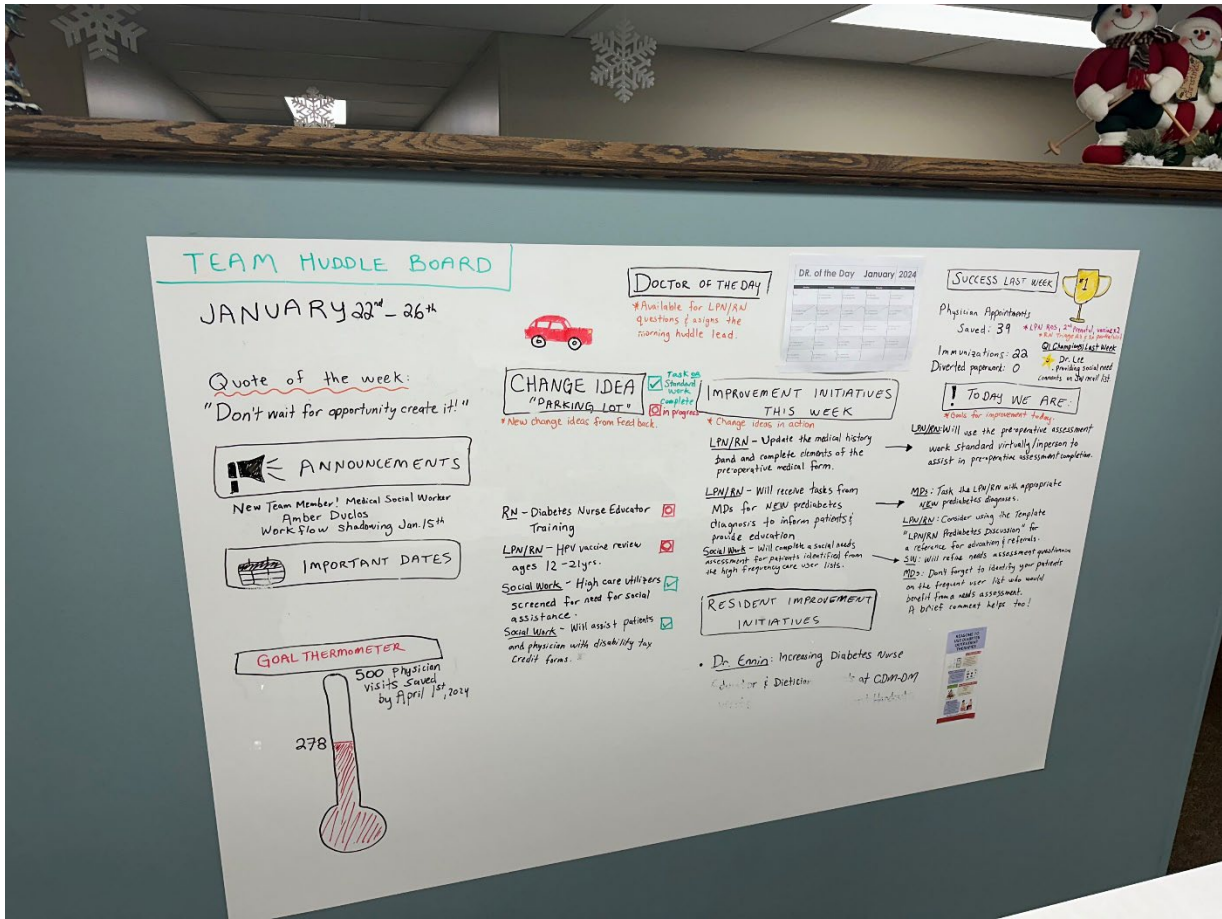 TEAM HUDDLE BOARD
JANUARY 22nd - 26th
Quote of the week:
"Don't wait for opportunity create it!"
ANNOUNCEMENTS
New Team Member! Medical Social Worker
Amber Duclos
Workflow Shadowing Jan. 15th
IMPORTANT DATES
GOAL THERMOMETER
500 Physician
visits saved
by April 1st, 2024
278
DOCTOR OF THE DAY
*Available for LPN/RN
questions & assigns the
morning huddle lead.
DR. of the Day January 2024
CHANGE IDEA
"PARKING LOT"
Task or
Standard
work
complete
in progress
*New change ideas from feedback.
RN - Diabetes Nurse Educator
Training
LPN/RN - HPV vaccine review
ages 12-21yrs.
Social Work - High care utilizers
screened for need for social
assistance.
Social Work - Will assist patients
and physician with disability tax
credit forms.
IMPROVEMENT INITIATIVES
THIS WEEK
* Change ideas in action
LPN/RN - Update the medical history
band and complete elements of the
pre-operative medical form.
LPN/RN - Will receive tasks from
MDs for NEW prediabetes
diagnosis to inform patients &
provide education
Social Work - Will complete a social needs
assessment for patients identified from
the high frequency care user lists.
RESIDENT IMPROVEMENT
INITIATIVES
• Dr. Ennin: Increasing Diabetes Nurse
& Dietician at CDM-DM
SUCCESS LAST WEEK
#1
Physician Appointments
Saved: 39
Immunizations: 22
Diverted paperwork: 0
QI Champion Last Week
Dr. Lee
- providing social need
comments on
! TODAY WE ARE:
*Goals for improvement today.
LPN/RN: Will use the pre-operative assessment
work standard virtually/inperson to
assist in pre-operative assessment completion.
MDs: Task the LPN/RN with appropriate
NEW prediabetes diagnoses.
LPN/RN: Consider using the Template
"LPN/RN Prediabetes Discussion" for
a reference for education & referrals.
SW: Will refine needs assessment questionnaire
MDs: Don't forget to identify your patients
on the frequent user list who would
benefit from a needs assessment.
A brief comment helps too!